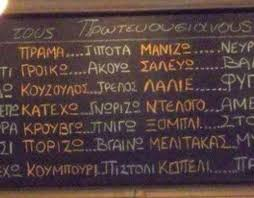 τους Πρωτευουσιανους
ΠΡΑΜΑ ...ΤΙΠΟΤΑ ΜΑΝΙΖΩ ...ΝΕΥΡ
ΤΙ ΓΡΟΙΚΩ ...ΑΚΟΥΩ ΣΑΛΕΥΩ ...ΒΑ
ΚΟΥΖΟΥΛΟΣ ..ΤΡΕΛΟΣ ΛΑΛΙΕ ...ΦΥΓ
ΚΑΤΕΧΩ ..ΓΝΩΡΙΖΩ ΝΤΕΛΟΓΟ ..ΑΜΕ
ΡΑ ΚΡΟΥΒΓΩ ..ΠΝΙΓΩ ΞΟΜΠΛΙ ..ΣΤΟ
ΣΙ ΠΟΡΙΖΩ ..ΒΓΑΙΝΩ ΜΕΛΙΤΑΚΑΣ ..ΜΥ
ΕΧΩ ΚΟΥΜΠΟΥΡΙ ..ΠΙΣΤΟΛΙ ΚΟΠΕΛΙ ..ΠΑΙ